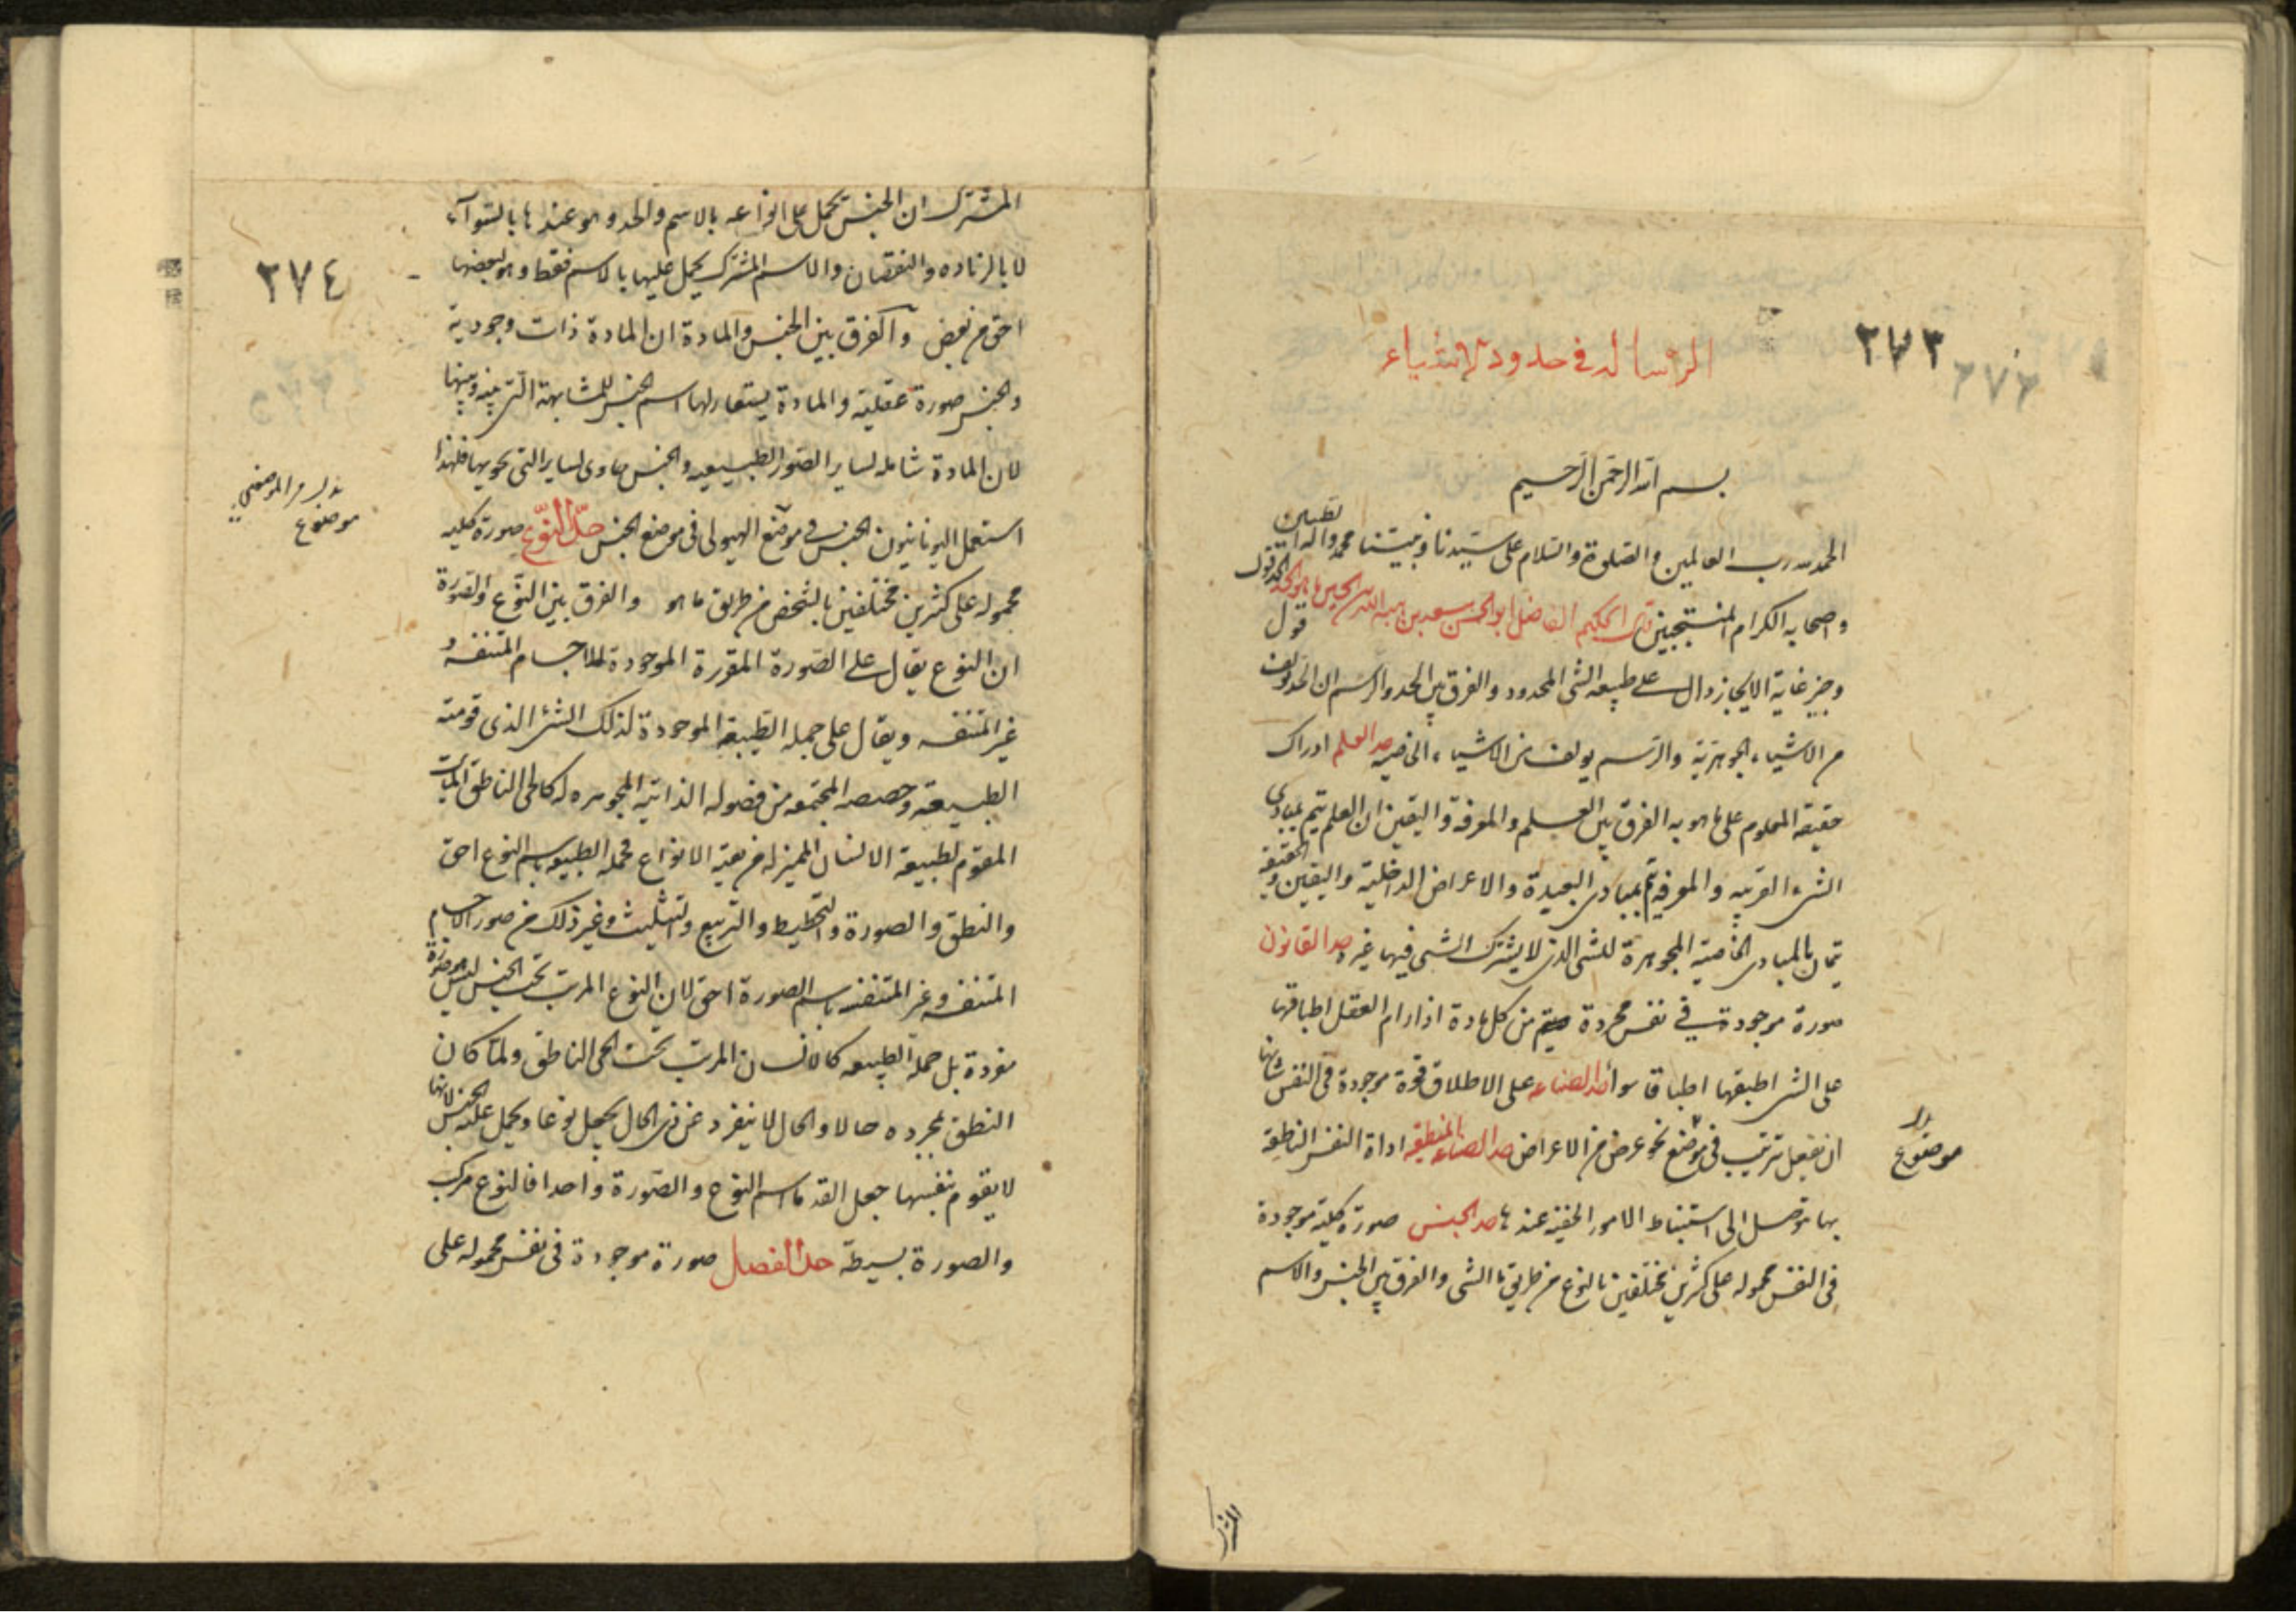 ٢٧٣
٢٧٢
الرسالة في حدود الاشياء
بسم الله الرحمن الرحيم
الحمد لله رب العالمين والصلوة والسلام على سيدنا ونبينا محمد واله الطيبين
واصحابه الكرام المنتجبين قال الحكيم الفاضل ابو الحسن سعيد بن هبة الله بن الحسين ما هو الحد الحد قول
وجيز غاية الايجاز دال على طبيعة الشى المحدود والفرق بين الحد والرسم ان الحد قول مولف
من الاشياء الجوهرية والرسم يولف من الاشياء الخاصية حد العلم ادراك
حقيقة المعلوم على ما هو به الفرق بين العلم والمعرفة واليقين ان العلم يتم بمبادى
الشى القريبه والمعرفة تتم بمبادى البعيدة والاعراض الداخلية واليقين والحقيقة
يتمان بالمبادى الخاصية المجوهرة للشى الذى لا يشترك الشى فيها غيره حد القانون
صورة موجودة في نفس مجردة من كل مادة اذا رام العقل اطباقها
على الشى اطبقها اطباقا سواء حد الصناعه على الاطلاق قوة موجودة فى النفس شانها
ان تفعل بترتيب فى موضع نحو غرض من الاغراض حد الصناعه المنطقية اداة النفس الناطقة
بها توصل الى استنباط الامور الخفية عندها حد الجنس صورة كلية موجودة
فى النفس محمولة على كثيرين مختلفين بالنوع من طريق ما الشى والفرق بين الجنس والاسم
موضوع
المشترك
٢٧٤
المشترك ان الجنس يحمل على انواعه بالاسم والحد وهو عندها بالسوآء
لا بالزياده والنقصان والاسم المشترك يحمل عليها بالاسم فقط وهو لبعضها
احق من بعض والفرق بين الجنس والمادة ان المادة ذات وجودية
والجنس صورة عقلية والمادة يستعار لها اسم الجنس للمشابهة التى بينه وبينها
لان المادة شاملة لساير الصور الطبيعيه والجنس حاوى لساير التى يحويها فلهذا
استعمل اليونانيون الجنس فى موضع الهيولى فى موضع الجنس حد النوع صورة كليه
محموله على كثيرين مختلفين بالشخص من طريق ما هو والفرق بين النوع والصورة
ان النوع يقال على الصورة المقررة الموجودة للاجسام المتنفسة و
غير المتنفسه ويقال على جملة الطبيعة الموجودة لذلك الشى الذى قومته
الطبيعة وحصصه المجتمعه من فصوله الذاتية المجوهره له كالحى الناطق المايت
المقوم لطبيعة الانسان المميز له من بقية الانواع فجملة الطبيعه باسم النوع احق
والنطق والصورة والتخطيط والتربيع والتثليث وغير ذلك من صور الاجسام
المتنفسه وغير المتنفسه باسم الصورة احق لان النوع المرتب تحت الجنس ليس هو صورة
مفردة بل جملة الطبيعه كالانسان المرتب تحت الحى الناطق ولما كان
النطق بمجرده حالا والحال لا ينفرد عن ذى الحال يجعل نوعا ويحمل عليه الجنس لانها
لا يقوم بنفسها جعل القدما اسم النوع والصورة واحدا فالنوع مركب
والصورة بسيطة حد الفصل صورة موجودة فى نفس محموله على
موضوع